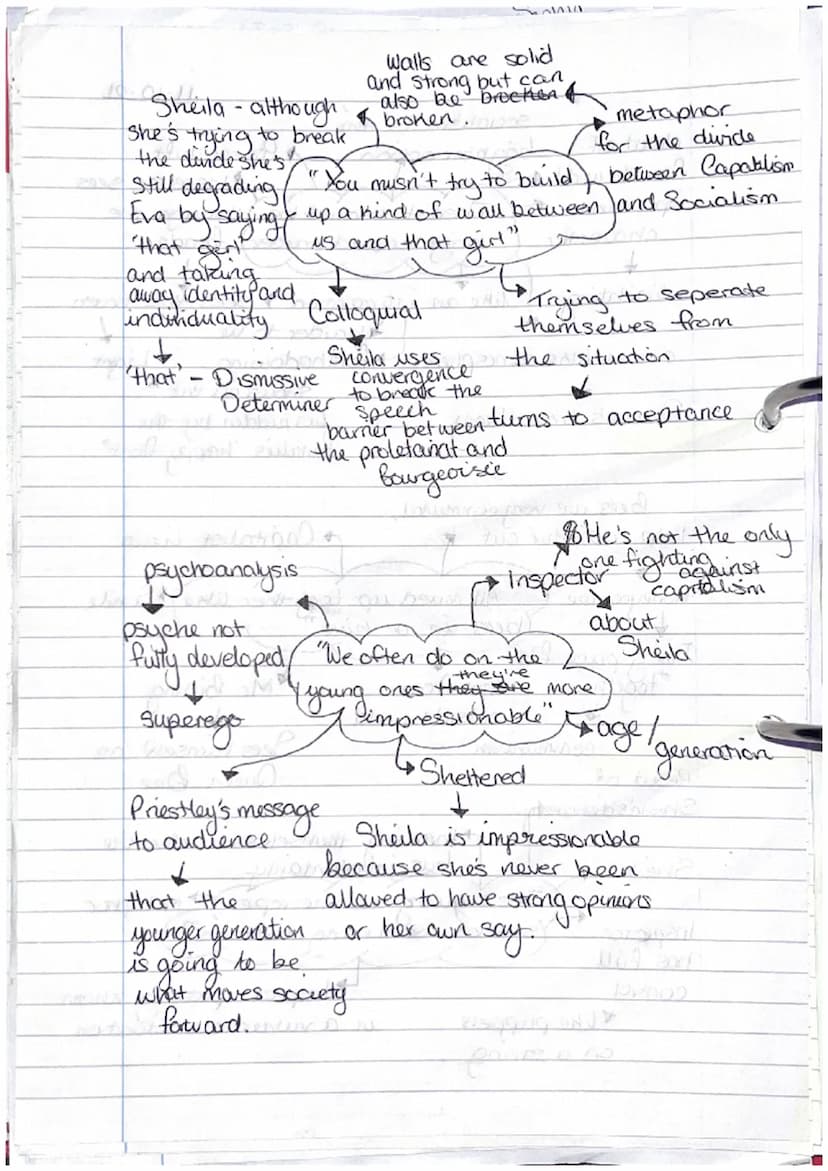 Walls are solid
and strong but can
also be brocken
broken.
Sheila - although
she's trying to break
the divide she's
still degrading
Eva by saying
'that girl'
and taking
away identity and
individuality
'that' - Dismissive
Determiner
"You musn't try to build
up a kind of wall between
us and that girl"
metaphor
for the divide
between Capatilism
and Socialism
Colloquial
Sheila uses
convergence
to break the
speech
barrier between
the proletariat and
Bourgeoisie
Trying to seperate
themselves from
the situation
turns to acceptance
psychoanalysis
psyche not
fully developed
Superego
"We often do on the
young ones they are they're more
impressionable"
Inspector
He's not the only
one fighting
against
capitalism
about
Sheila
age/
generation
Sheltered
Sheila is impressionable
because she's never been
allowed to have strong opinions
or her own say.
Priestley's message
to audience
that the
younger generation
is going to be
what moves society
forward.